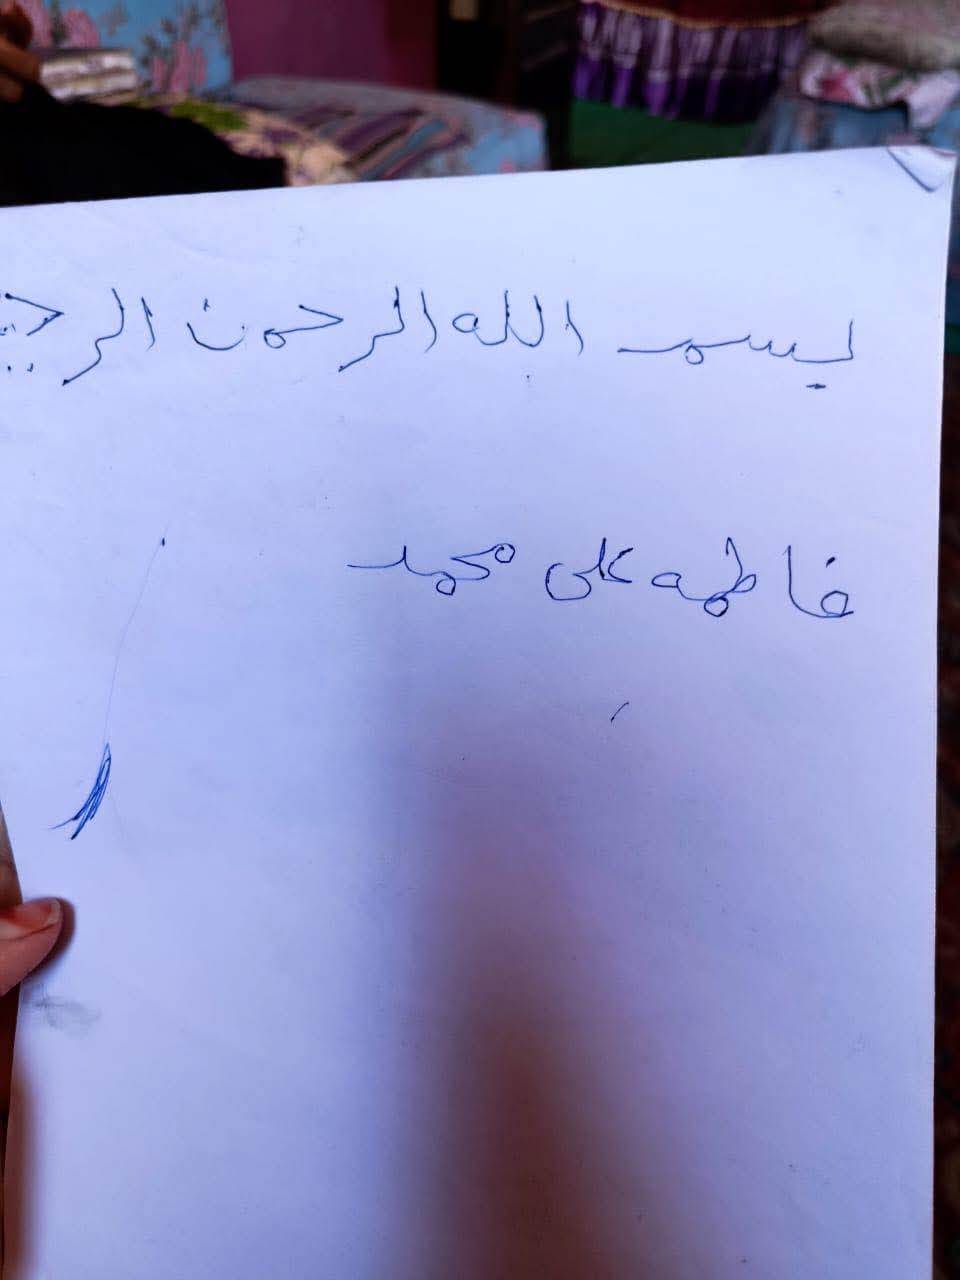 بسم الله الرحمن الرحي
فاطمه على محمد